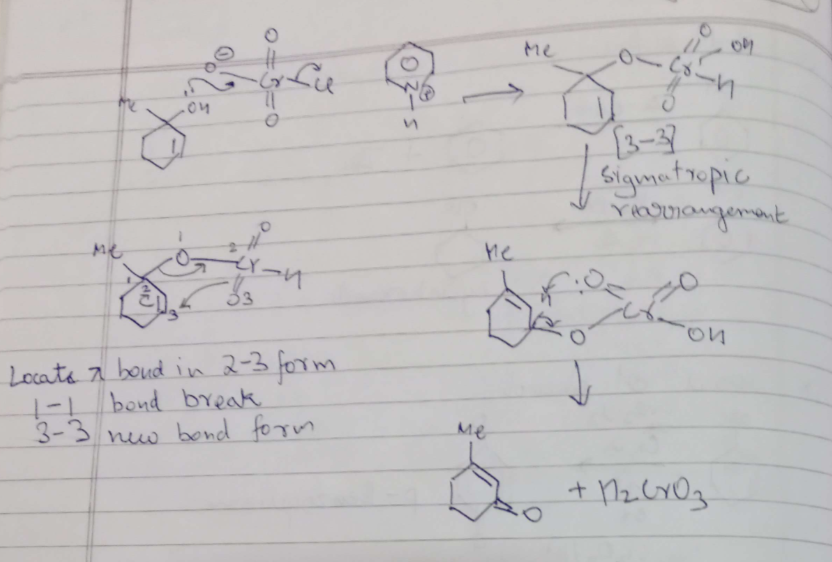 O⊖ O
Cr Cl
O
N⊕
H
Me OH
Me O Cr O OH
O H
[3-3]
sigmatropic
rearrangement
Me 1 O 2 Cr O H
1 2 3 O3
Me
:O Cr O
O OH
Locate π bond in 2-3 form
1-1 bond break
3-3 new bond form
Me
O + H2CrO3